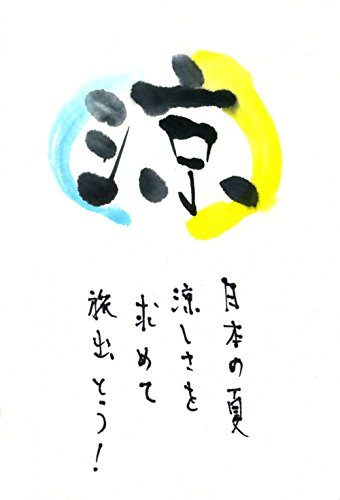 涼
日本の夏
涼しさを
求めて
旅出とう!